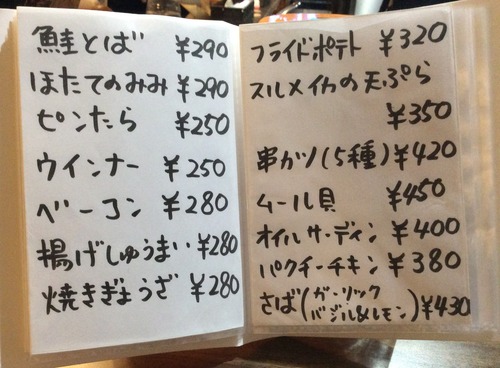 鮭とば ¥290
ほたてのみみ ¥290
ピンたら ¥250
ウインナー ¥250
ベーコン ¥280
揚げしゅうまい ¥280
焼きぎょうざ ¥280
フライドポテト ¥320
スルメイカの天ぷら
¥350
串カツ(5種) ¥420
ムール貝 ¥450
オイルサーディン ¥400
パクチーチキン ¥380
さば(ガーリック
バジル&レモン) ¥430